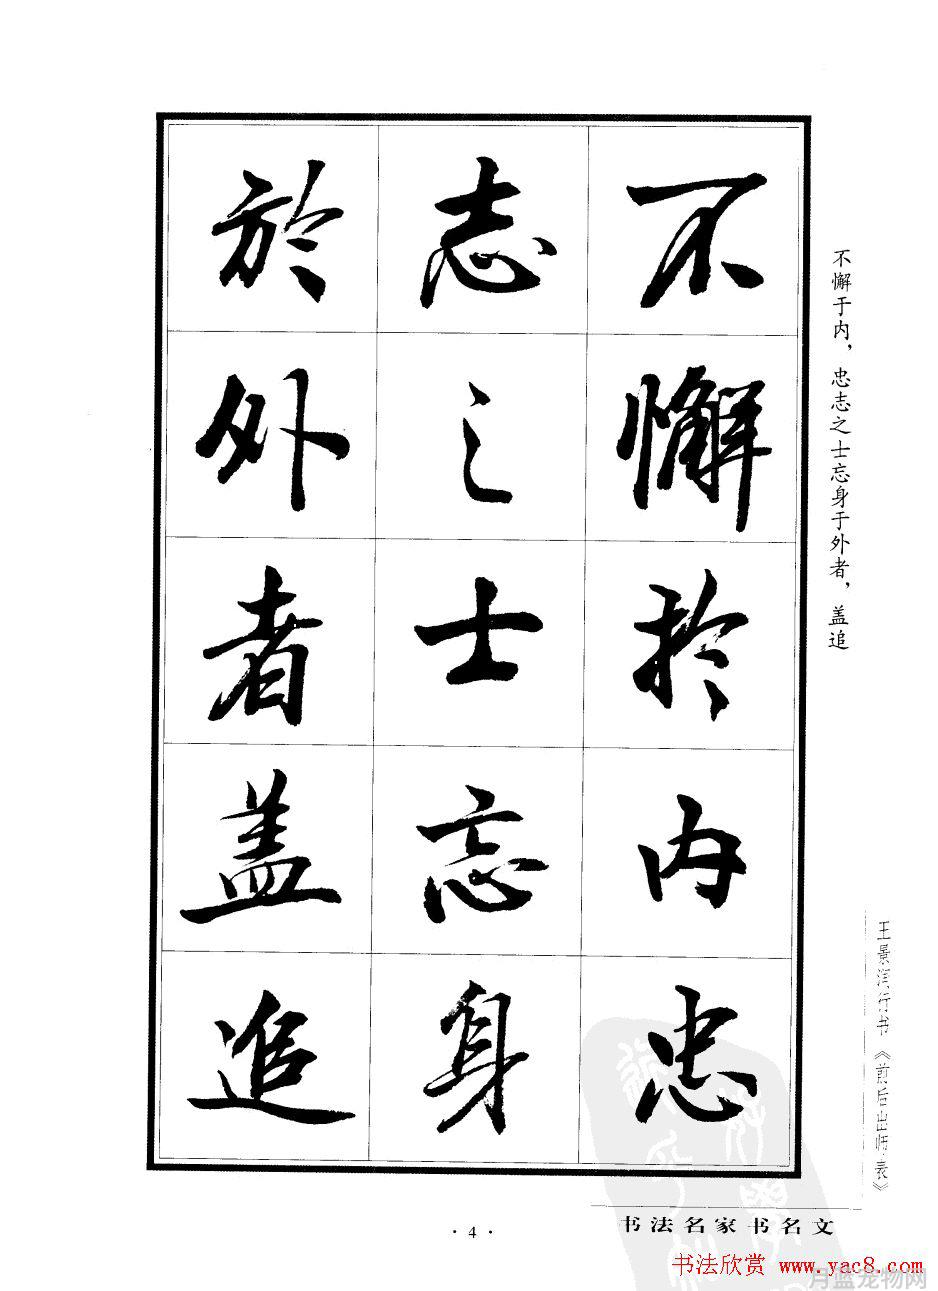 不懈於内忠
志之士忘身
於外者盖追
不懈于内，忠志之士忘身于外者，盖追
王景芬行书《前后出师表》
书法名家书名文
·4·
书法欣赏 www.yac8.com
月蓝宠物网